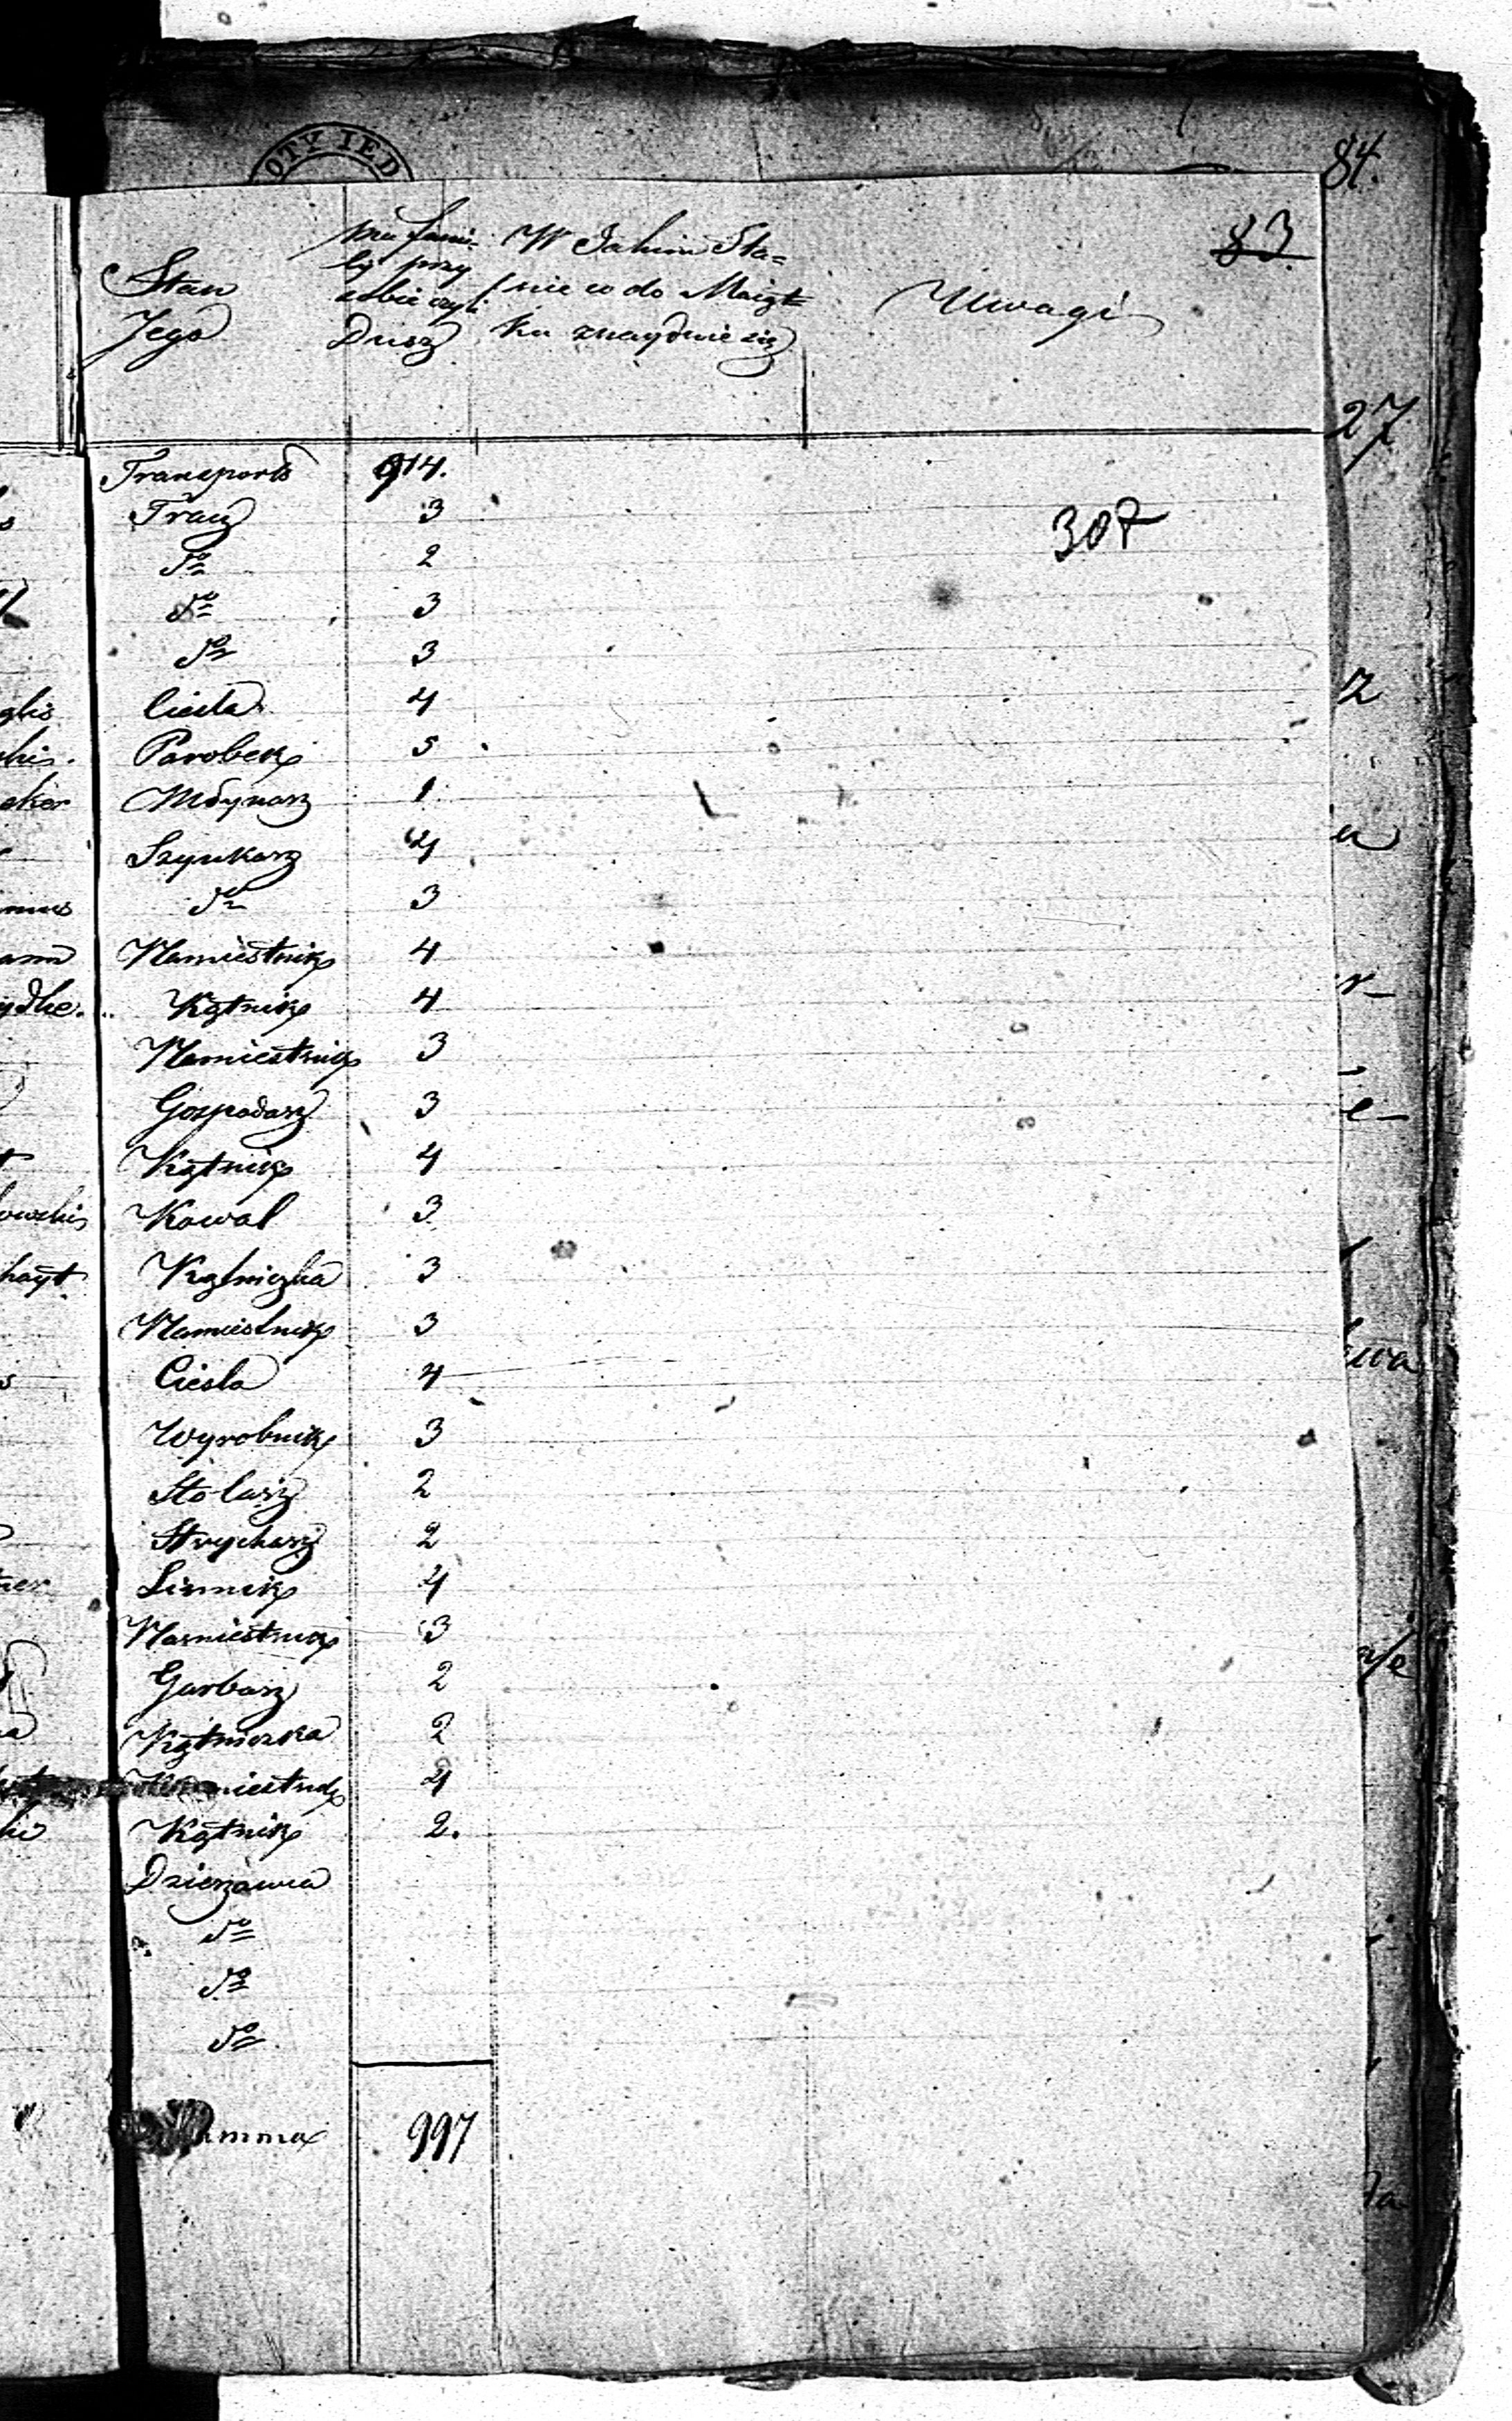 OTY JED
84.
83.
Stan Jego
ma fami-
lij przy
sobie czyli
Dusz
W Jakim Sta-
nie co do Maiąt-
ku znayduie się
Uwagi
27
Transport 914.
Tracz 3
307
do 2
do 3
do 3
glis Ciesla 4
Parobek 5
Młynarz 1
Szynkarz 4
do 3
Namiestnik 4
Kątnik 4
Namiestnik 3
Gospodarz 3
Kątnik 4
owski Kowal 3
hayt. Kątniczka 3
Namiestnik 3
Ciesla 4
Wyrobnik 3
Stolarz 2
Strycharz 2
Namiestnik 3
Garbarz 2
Kątniczka 2
miestnik 4
ki Kątnik 2.
Dzierzawca
do
do
do
umma 997